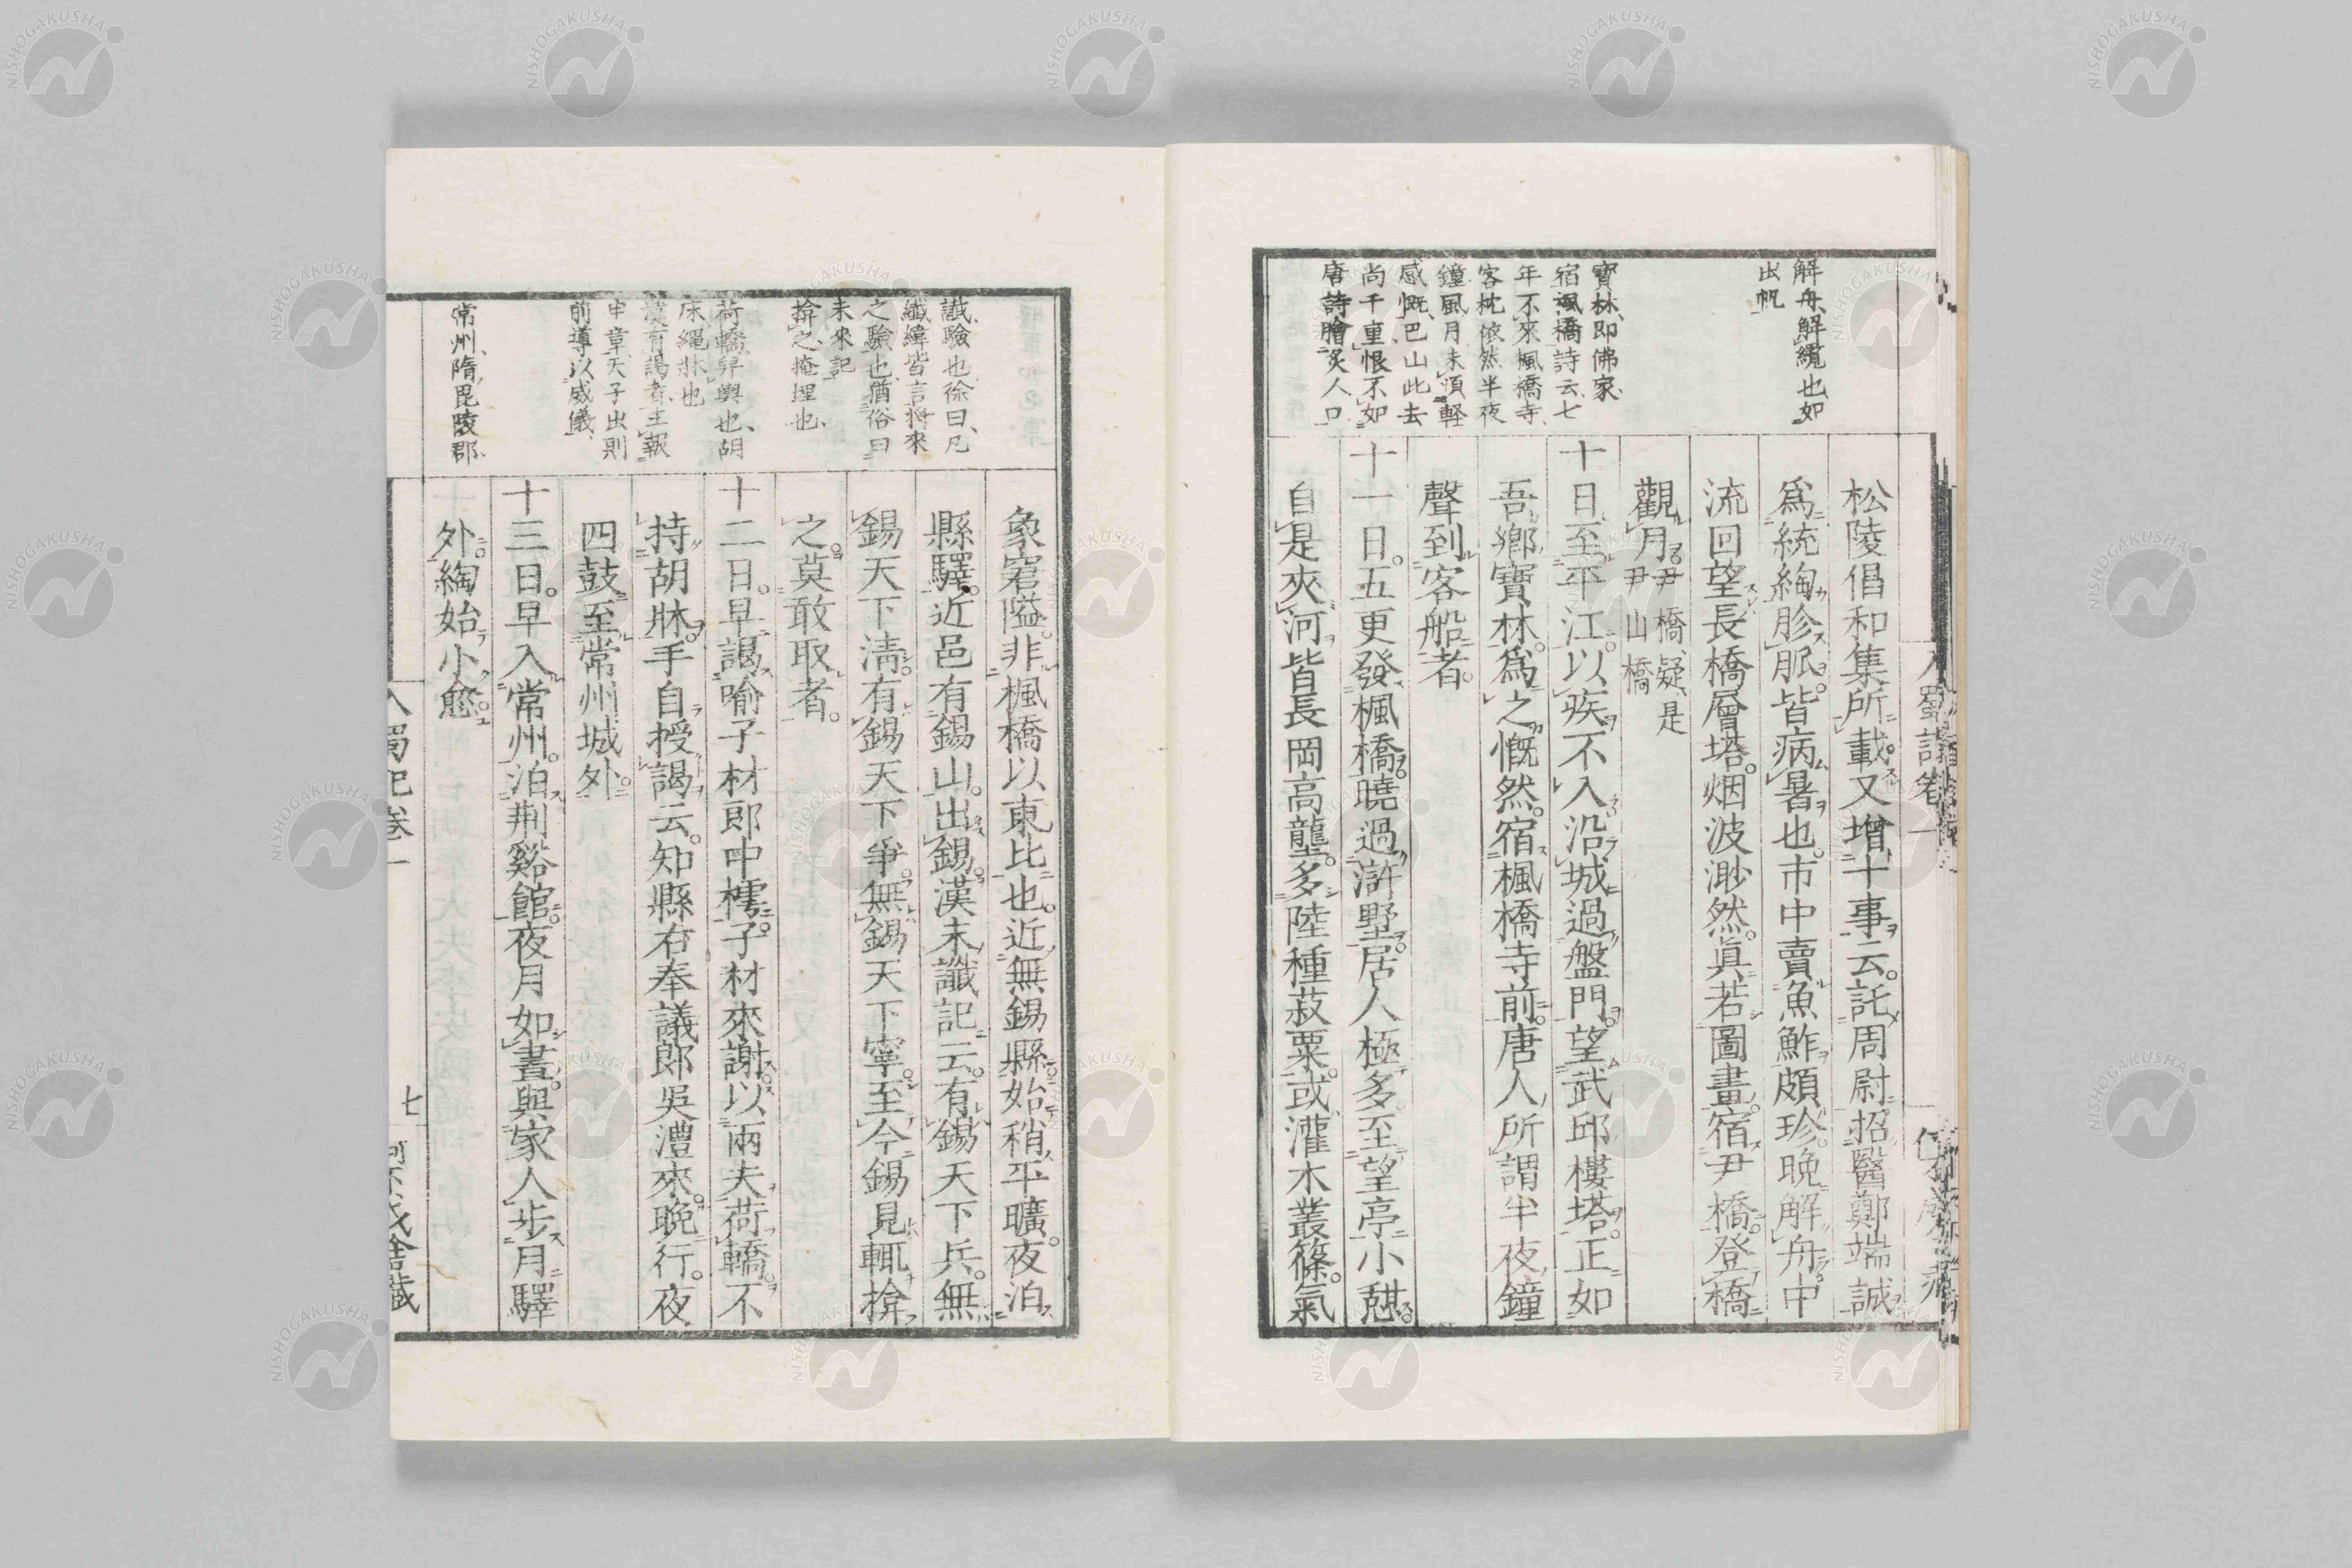 解舟、解纜也、如
出帆
寶林、即佛家、
宿楓橋詩云、七
年不來楓橋寺、
客枕依然半夜
鐘風月未須軽
感慨、巴山此去
尚千重、恨不如
唐詩膾炙人口
松陵倡和集所載。又增十事云。託周尉招醫鄭端誠
爲統綯胗脈。皆病暑也。市中賣魚鮓頗珍。晚解舟中
流回望長橋層塔。烟波渺然。眞若圖畫。宿尹橋。登橋
觀月 尹橋、疑、是尹山橋
十日。至平江。以疾不入。沿城過盤門。望武邱樓塔。正如
吾鄉寶林。爲之慨然。宿楓橋寺前。唐人所謂半夜鐘
聲到客船者。
十一日。五更發楓橋。曉過滸墅。居人極多。至望亭小憩。
自是夾河皆長岡高壟。多陸種菽粟。或灌木叢篠。氣
讖驗也徐曰、凡
纖緯皆言將來
之驗也、猶俗曰
未來記
揜之、掩埋也、
荷轎、舁輿也、胡
床、縄牀也
漢有謁者、主報
中章、天子出則
前導以威儀、
常州、隋毘陵郡、
象窘隘。非楓橋以東比也。近無錫縣始稍平曠。夜泊
縣驛。近邑有錫山。出錫。漢末讖記云。有錫天下兵。無
錫天下清。有錫天下爭。無錫天下寧。至今錫見輒揜
之。莫敢取者。
十二日。早謁喻子材郎中樗。子材來謝。以兩夫荷轎。不
持胡牀。手自授謁云。知縣右奉議郎吳澧來。晚行。夜
四鼓至常州城外。
十三日。早入常州。泊荆谿館。夜月如晝。與家人步月驛
外。綯始小愈
入蜀記卷一
七